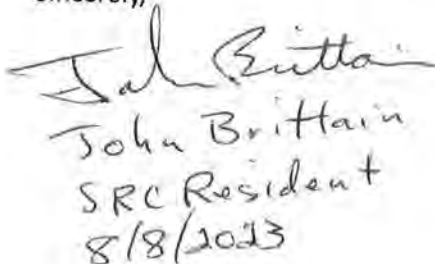 Sincerely,
John Brittain
John Brittain
SRC Resident
8/8/2023